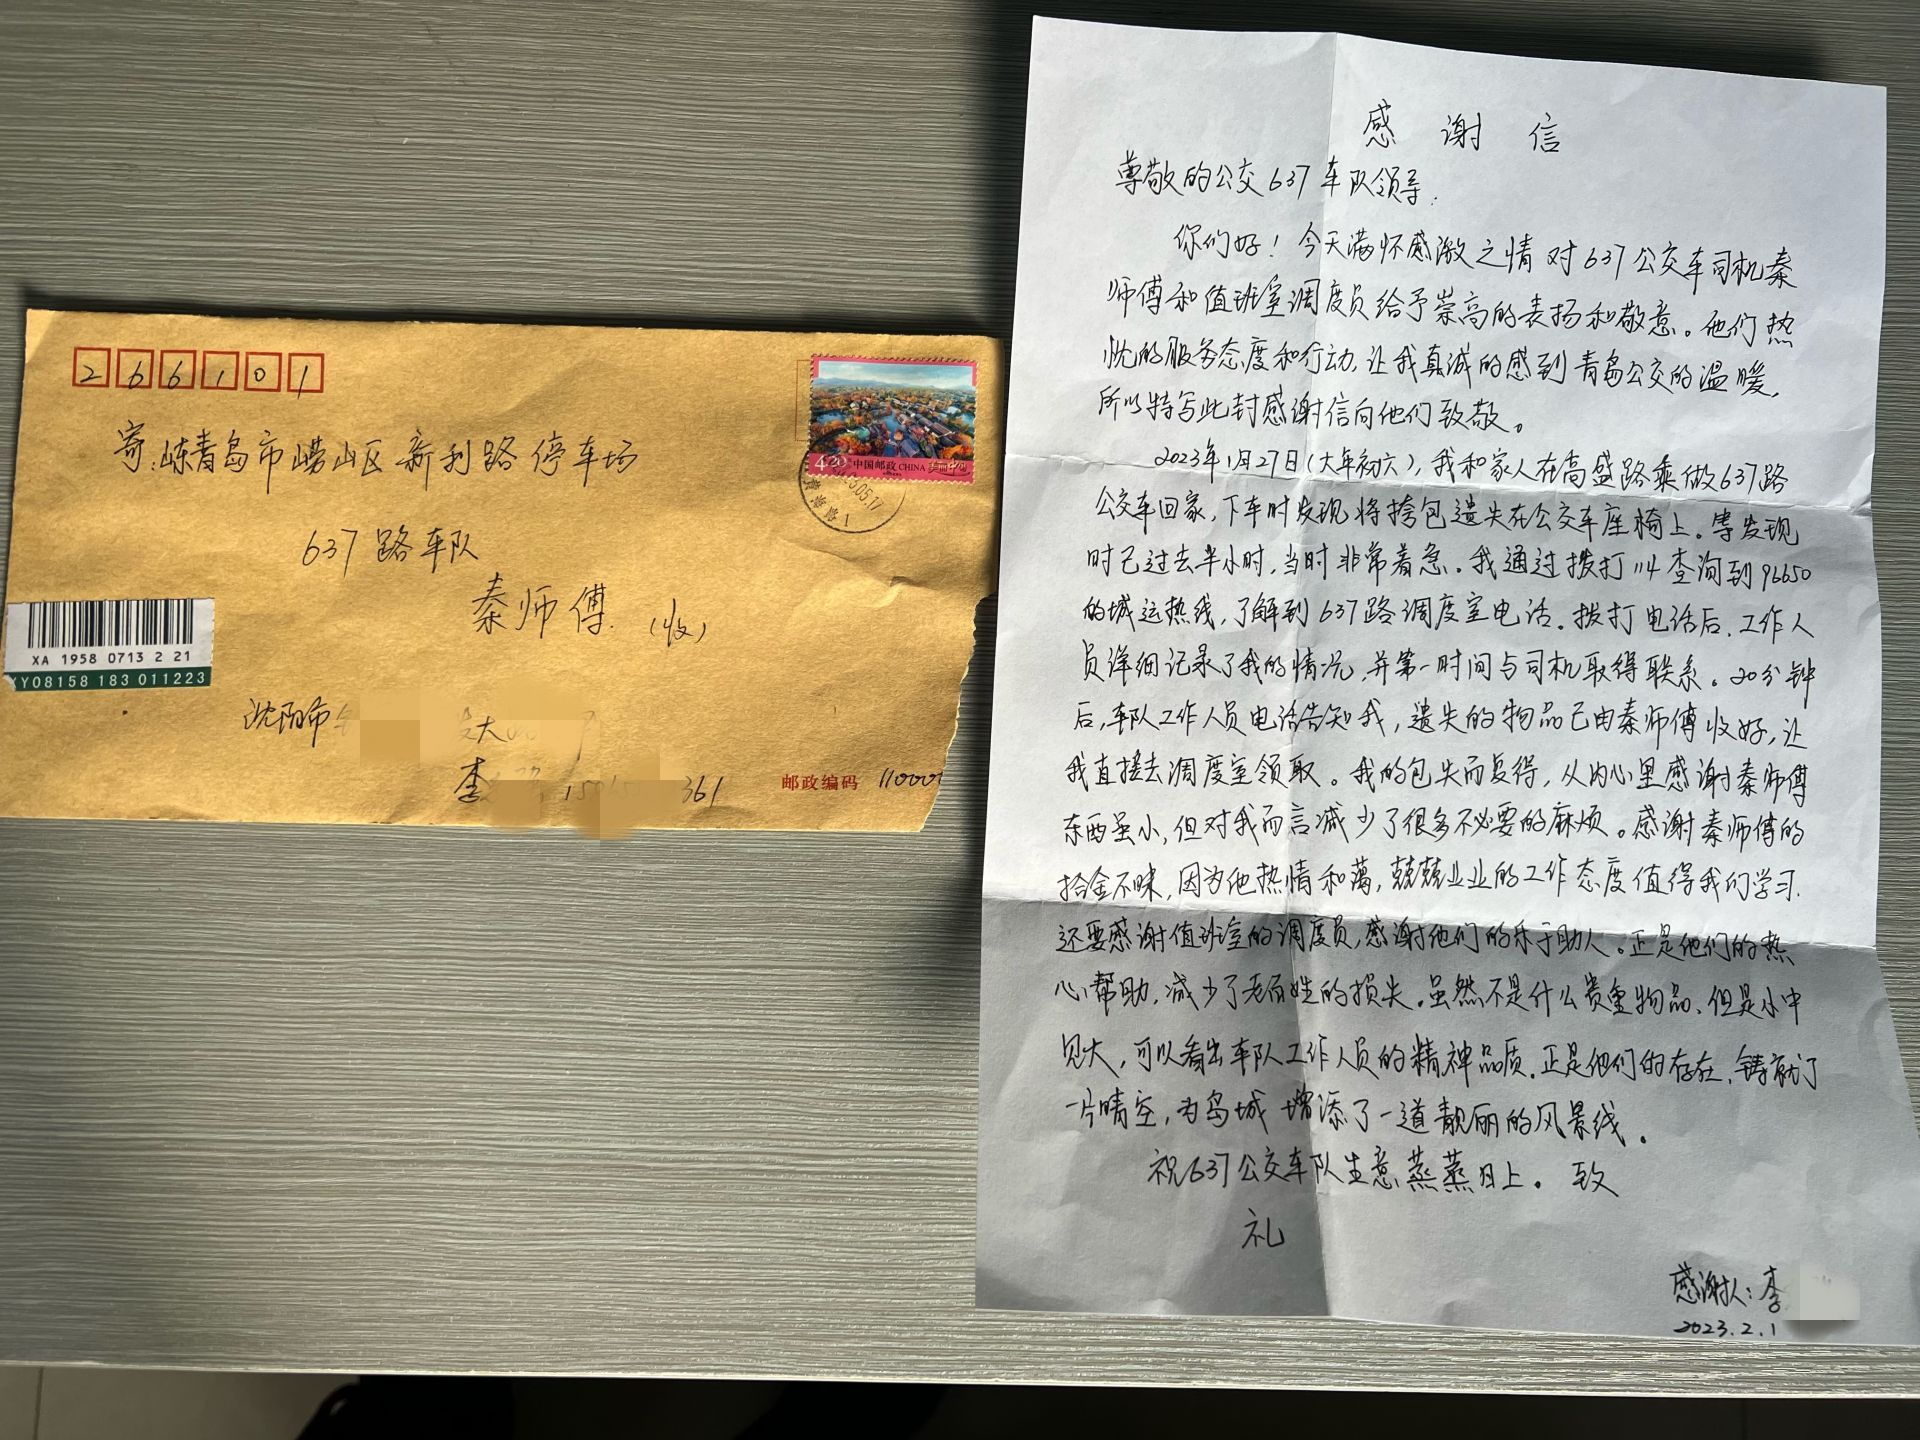 266101
寄:山东青岛市崂山区新利路停车场
637路车队
秦师傅.(收)
4.20元 中国邮政 CHINA 美丽中国
XA 1958 0713 2 21
XY08158 183 011223
沈阳市
大
李 361
邮政编码 110000
感谢信
尊敬的公交637车队领导:
你们好!今天满怀感激之情对637公交车司机秦
师傅和值班室调度员给予崇高的表扬和敬意。他们热
忱的服务态度和行动,让我真诚的感到青岛公交的温暖,
所以特写此封感谢信向他们致敬。
2023年1月27日(大年初六),我和家人在高盛路乘做637路
公交车回家,下车时发现将挎包遗失在公交车座椅上。等发现
时已过去半小时,当时非常着急。我通过拨打114查询到96650
的城运热线,了解到637路调度室电话。拨打电话后,工作人
员详细记录了我的情况,并第一时间与司机取得联系。20分钟
后,车队工作人员电话告知我,遗失的物品已由秦师傅收好,让
我直接去调度室领取。我的包失而复得,从内心里感谢秦师傅
东西虽小,但对我而言减少了很多不必要的麻烦。感谢秦师傅的
拾金不昧,因为他热情和蔼,兢兢业业的工作态度值得我们学习.
还要感谢值班室的调度员,感谢他们的乐于助人。正是他们的热
心帮助,减少了老百姓的损失。虽然不是什么贵重物品,但是小中
见大,可以看出车队工作人员的精神品质.正是他们的存在,铸就了
一片晴空,为岛城增添了一道靓丽的风景线。
祝637公交车队生意蒸蒸日上。致
礼
感谢人:李
2023.2.1